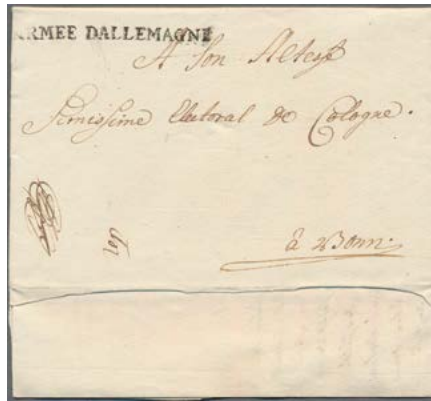 ARMEE DALLEMAGNE
A Son Altesse
Serenissime Electoral de Cologne.
à Bonn.